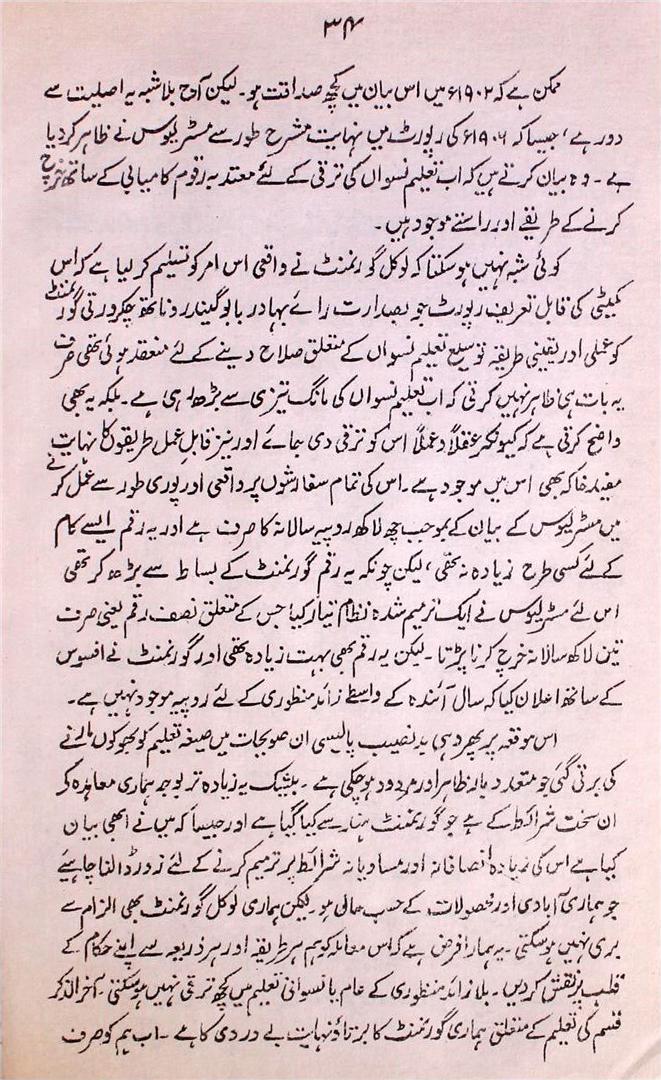 ۳۴
ممکن ہے کہ ۱۹۰۲ء میں اس بیان میں کچھ صداقت ہو۔ لیکن آج بلاشبہ یہ اصلیت سے
دور ہے، جیسا کہ ۱۹۰۶ء کی رپورٹ میں نہایت مشرح طور سے مسٹر لیوس نے ظاہر کر دیا
ہے۔ وہ بیان کرتے ہیں کہ اب تعلیم نسواں کی ترقی کے لئے معتد بہ رقوم کامیابی کے ساتھ خرچ
کرنے کے طریقے اور راستے موجود ہیں۔
کوئی شبہ نہیں ہو سکتا کہ لوکل گورنمنٹ نے واقعی اس امر کو تسلیم کر لیا ہے کہ اس
کمیٹی کی قابل تعریف رپورٹ جو بصدارت رائے بہادر بابو گیندر وناتھ چکرورتی گورنمنٹ
کو عملی اور یقینی طریقہ توسیع تعلیم نسواں کے متعلق صلاح دینے کے لئے منعقد ہوئی تھی صرف
یہ بات ہی ظاہر نہیں کرتی کہ اب تعلیم نسواں کی مانگ تیزی سے بڑھ رہی ہے۔ بلکہ یہ بھی
واضح کرتی ہے کہ کیونکر عقلاً و عملاً اس کو ترقی دی جائے اور نیز قابل عمل طریقوں کا نہایت
مفید خاکہ بھی اس میں موجود ہے۔ اس کی تمام سفارشوں پر واقعی اور پوری طور سے عمل کرنے
میں مسٹر لیوس کے بیان کے بموجب چھ لاکھ روپیہ سالانہ کا صرف ہے اور یہ رقم ایسے کام
کے لئے کسی طرح زیادہ نہ تھی، لیکن چونکہ یہ رقم گورنمنٹ کے بساط سے بڑھ کر تھی
اس لئے مسٹر لیوس نے ایک ترمیم شدہ نظام تیار کیا جس کے متعلق نصف رقم یعنی صرف
تین لاکھ سالانہ خرچ کرنا پڑتا۔ لیکن یہ رقم بھی بہت زیادہ تھی اور گورنمنٹ نے افسوس
کے ساتھ اعلان کیا کہ سال آئندہ کے واسطے زائد منظوری کے لئے روپیہ موجود نہیں ہے۔
اس موقعہ پر پھر وہی بد نصیب پالیسی ان صوبجات میں صیغہ تعلیم کو بھوکوں مارنے
کی برتی گئی جو متعدد بار ظاہر اور مردود ہو چکی ہے۔ بیشک یہ زیادہ تر بوجہ ہماری معاہدہ کر
ان سخت شرائط کے ہے جو گورنمنٹ ہند سے کیا گیا ہے اور جیسا کہ میں نے ابھی بیان
کیا ہے اس کی زیادہ انصافانہ اور مساویانہ شرائط پر ترمیم کرنے کے لئے زور ڈالنا چاہئے
جو ہماری آبادی اور محصولات کے حسب حال ہو۔ لیکن ہماری لوکل گورنمنٹ بھی الزام سے
بری نہیں ہو سکتی۔ یہ ہمارا فرض ہے کہ اس معاملہ کو ہم ہر طریقہ اور ہر ذریعہ سے اپنے حکام کے
قلب پر نقش کر دیں۔ بلا زائد منظوری کے عام یا نسوانی تعلیم میں کچھ ترقی نہیں ہو سکتی۔ آخر الذکر
قسم کی تعلیم کے متعلق ہماری گورنمنٹ کا برتاؤ نہایت بے دردی کا ہے۔ اب ہم کو صرف